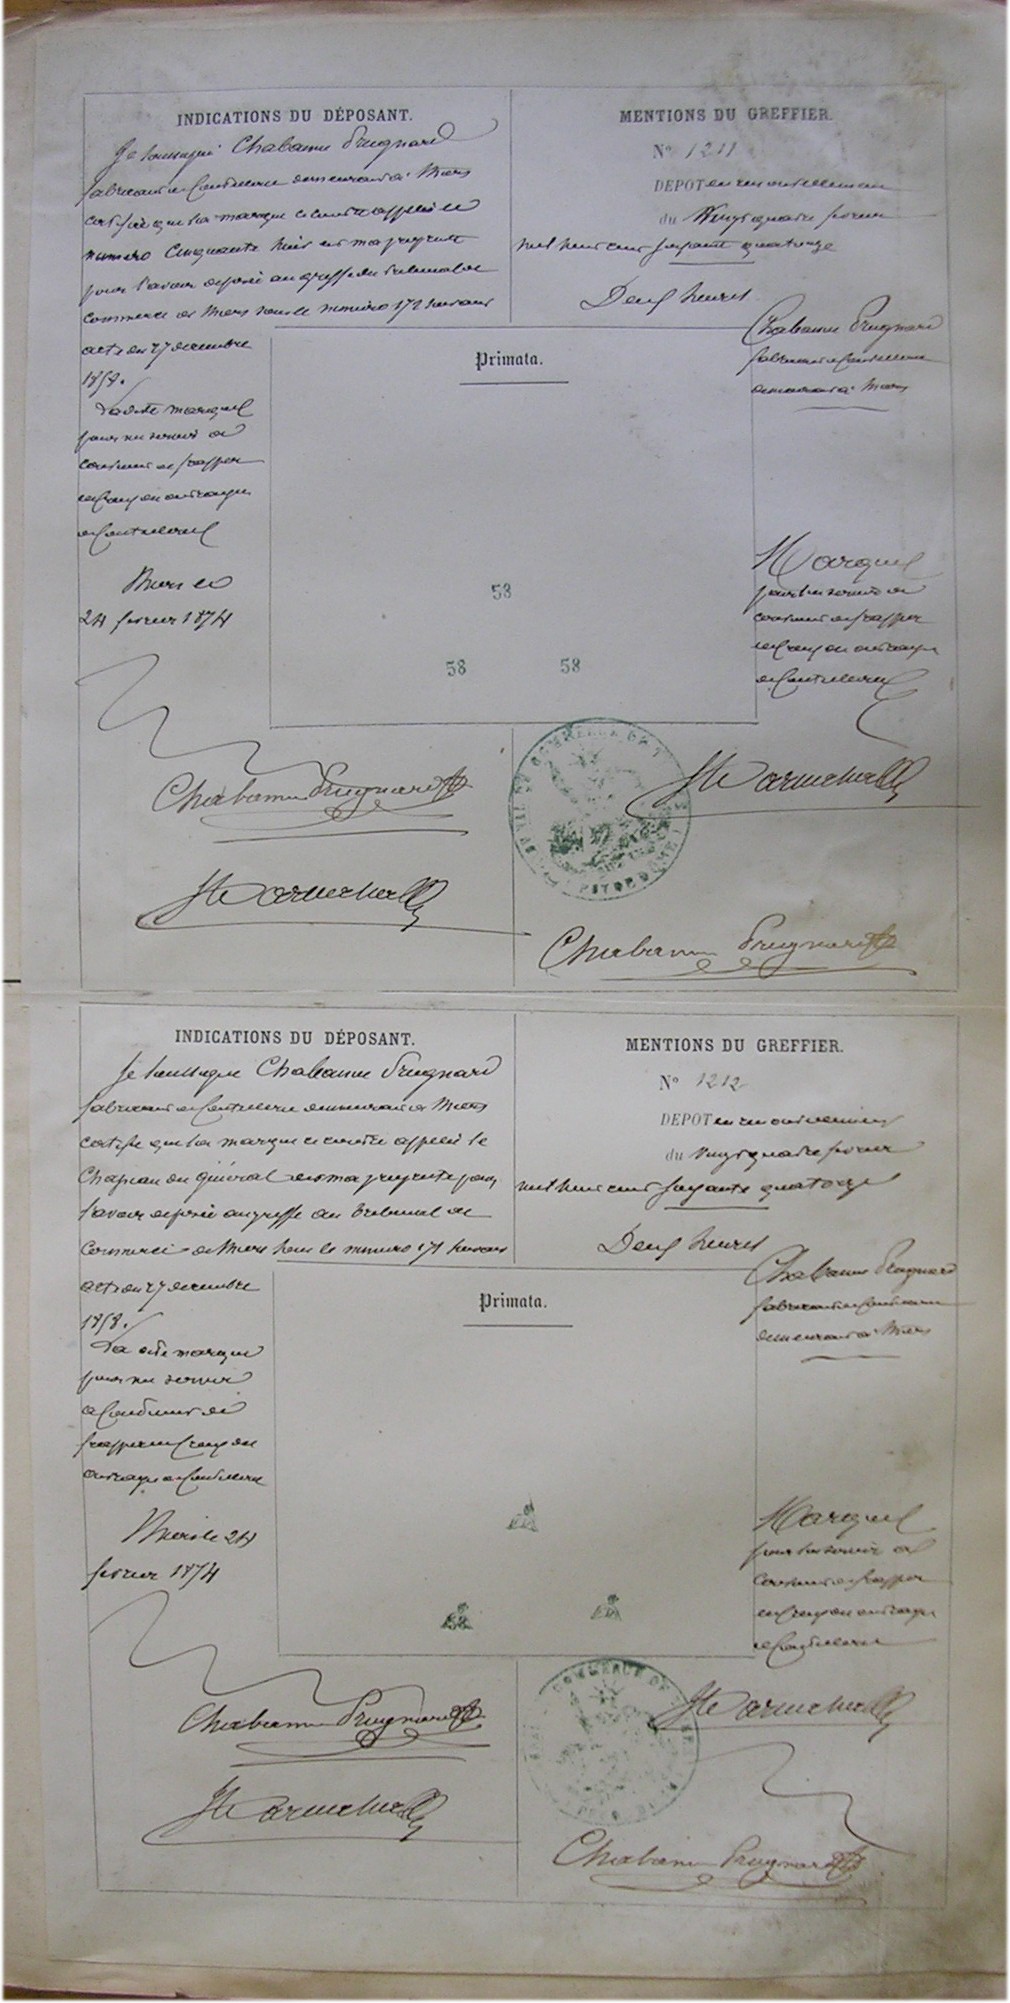 INDICATIONS DU DÉPOSANT.
Je soussigné Chabanne Prugnard
fabricant de Coutellerie demeurant à Thiers
certifie que la marque ci contre appelée le
numéro Cinquante huit est ma propriété
pour l'avoir déposée au greffe du tribunal de
commerce de Thiers sous le numéro 172 suivant
acte du 27 décembre
1858.
La dite marque
pour me servir de
continuer de frapper
en creux des ouvrages
de Coutellerie
Thiers le
24 février 1874
Chabanne Prugnard
MENTIONS DU GREFFIER.
N° 1211
DEPOT en renouvellement
du Vingt quatre février
mil huit cent soixante quatorze
Deux heures
Chabanne Prugnard
fabricant de Coutellerie
demeurant à Thiers
Primata.
58
58 58
Marque
pour lui servir de
continuer de frapper
en creux des ouvrages
de Coutellerie
Chabanne Prugnard
INDICATIONS DU DÉPOSANT.
Je soussigné Chabanne Prugnard
fabricant de Coutellerie demeurant à Thiers
certifie que la marque ci contre appelée le
Chapeau du général est ma propriété pour
l'avoir déposée au greffe du tribunal de
Commerce de Thiers sous le numéro 171 suivant
acte du 27 décembre
1858.
La dite marque
pour me servir
à Continuer de
frapper en creux des
ouvrages de Coutellerie
Thiers le 24
février 1874
Chabanne Prugnard
MENTIONS DU GREFFIER.
N° 1212
DEPOT en renouvellement
du Vingt quatre février
mil huit cent soixante quatorze
Deux heures
Chabanne Prugnard
fabricant de Coutellerie
demeurant à Thiers
Primata.
Marque
pour lui servir de
Continuer de frapper
en creux des ouvrages
de Coutellerie
Chabanne Prugnard